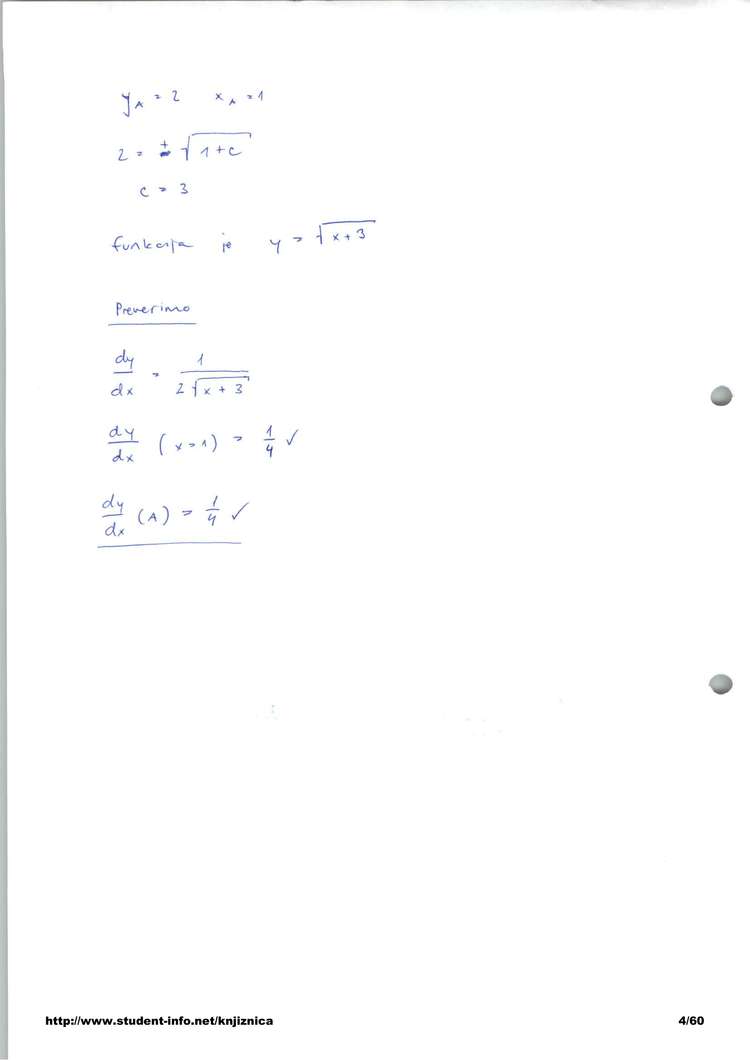 y_A = 2   x_A = 1
2 = ± √(1+c)
c = 3
funkcija je y = √(x+3)
Preverimo
dy/dx = 1/(2√(x+3))
dy/dx (x=1) = 1/4 ✓
dy/dx (A) = 1/4 ✓
http://www.student-info.net/knjiznica 4/60